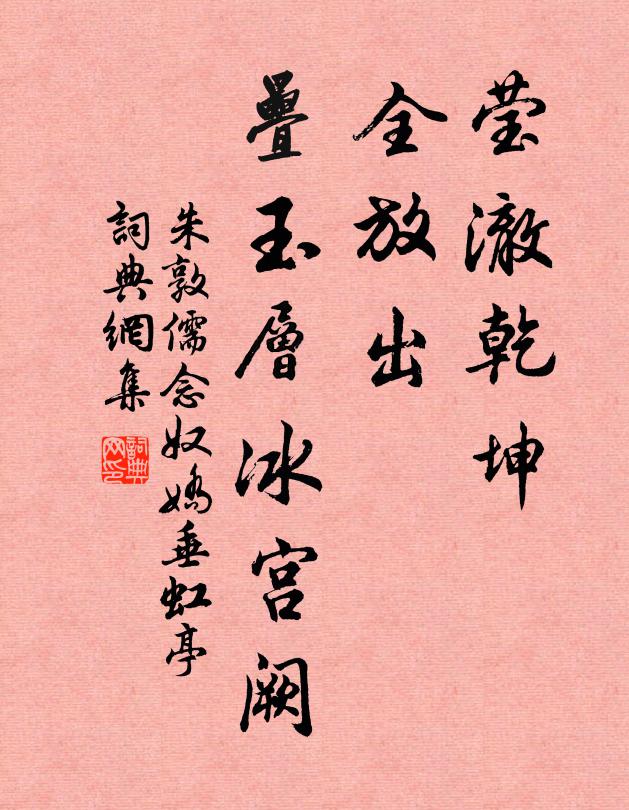 莹澈乾坤
全放出
疊玉層冰宫阙
朱敦儒念奴嬌垂虹亭
詞典網集
詞典网印